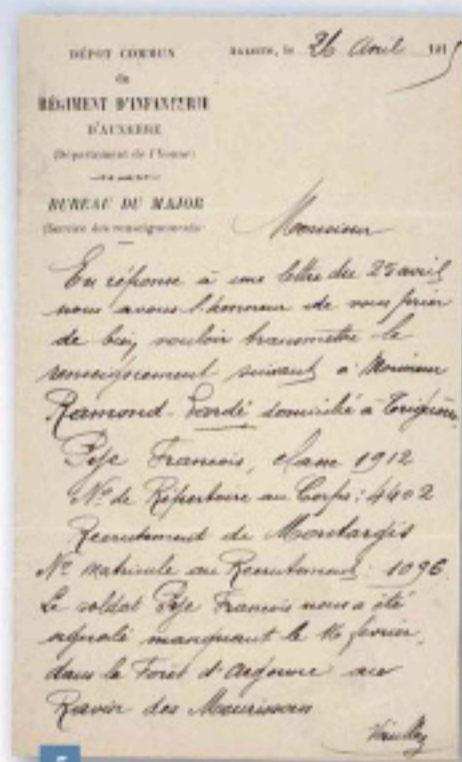 DÉPOT COMMUN
du
RÉGIMENT D'INFANTERIE
D'AUXERRE
(Département de l'Yonne)
BUREAU DU MAJOR
(Service des renseignements)
AUXERRE, le 26 Avril 1915
Monsieur
En réponse à une lettre du 25 avril
nous avons l'honneur de vous prier
de bien vouloir transmettre le
renseignement suivant à Monsieur
Ramond domicilié à
François, classe 1912
No de Répertoire au Corps : 4402
Recrutement de Montargis
No matricule au Recrutement : 1096
Le soldat François nous a été
signalé manquant le 16 février,
dans la Forêt d'Argonne au
Ravin des Meurissons
5